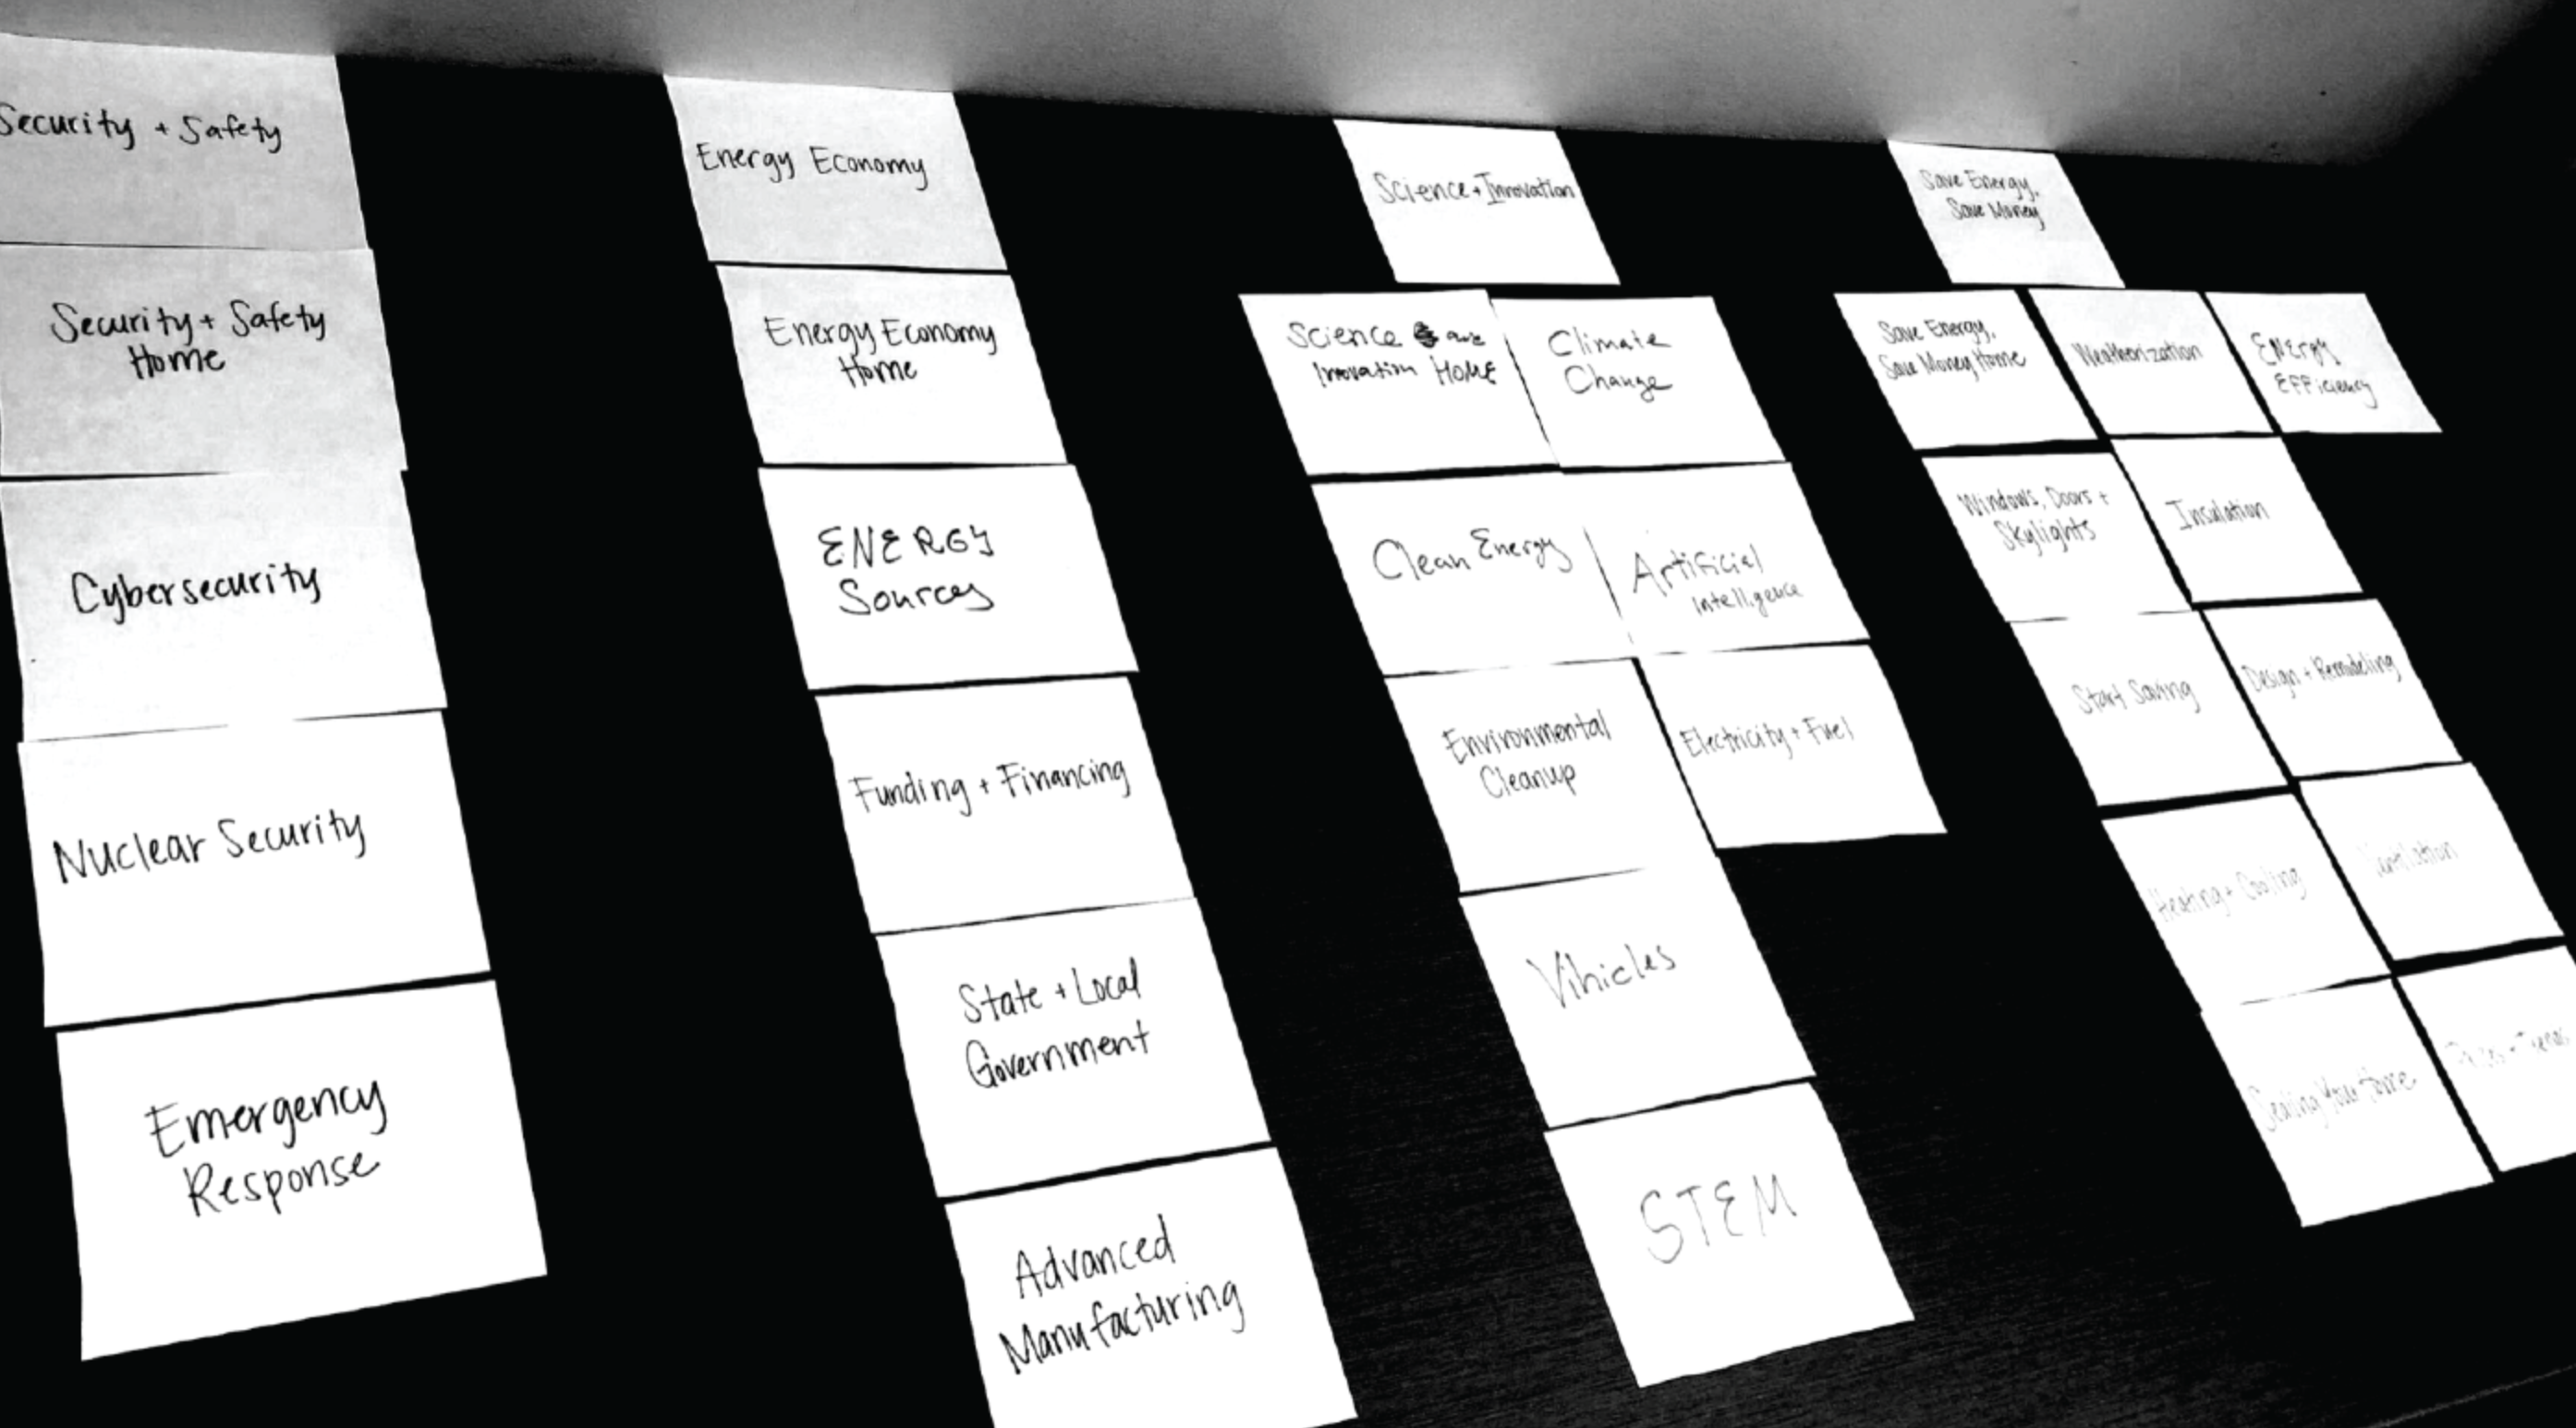 Security + Safety
Security + Safety
Home
Cybersecurity
Nuclear Security
Emergency
Response
Energy Economy
Energy Economy
Home
ENERGY
Sources
Funding + Financing
State + Local
Government
Advanced
Manufacturing
Science + Innovation
Science
Innovation HOME
Climate
Change
Clean Energy
Artificial
Intelligence
Environmental
Cleanup
Electricity + Fuel
Vihicles
STEM
Save Energy,
Save Money
Save Energy,
Save Money Home
Weatherization
ENergy
EFFiciency
Windows, Doors +
Skylights
Insulation
Start Saving
Design + Remodeling
Heating + Cooling
Ventilation
Sealing Your Home